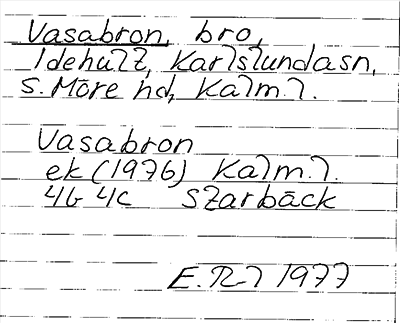 Vasabron, bro,
Idehult, Karlslundasn,
S. Möre hd, Kalm.l.
Vasabron
ek (1976) Kalm.l.
4G 4c Starbäck
E. 1977